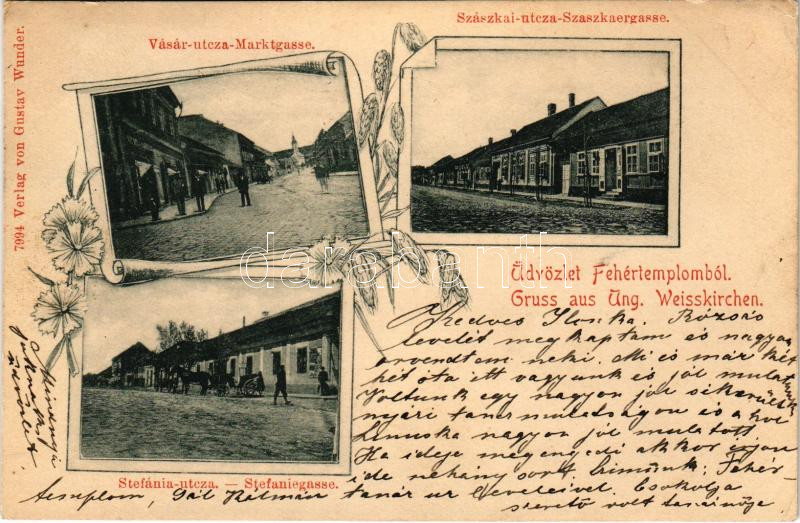 Vásár-utcza-Marktgasse.
Szászkai-utcza-Szaszkaergasse.
7994 Verlag von Gustav Wunder.
darabanth
Üdvözlet Fehértemplomból.
Gruss aus Ung. Weisskirchen.
Kedves Ilonka. Rózsás
levelét megkaptam és nagyon
örvendtem neki. Mi is már két
hét óta itt vagyunk és jól mulatunk
Voltunk egy nagyon jól sikerült
nyári tanczmulatságon és a hol
nagyon jól mulatott
Ha ideje megengedi akkor írjon
ide nehány sort. Czímünk: Fehér-
templom, Gál Kálmán tanár ur leveleivel. Csókolja
szerető volt
Stefánia-utcza. — Stefaniegasse.